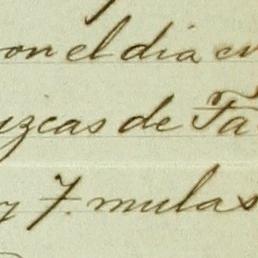 on el dia en
uzcas de Ta
y 7. mulas